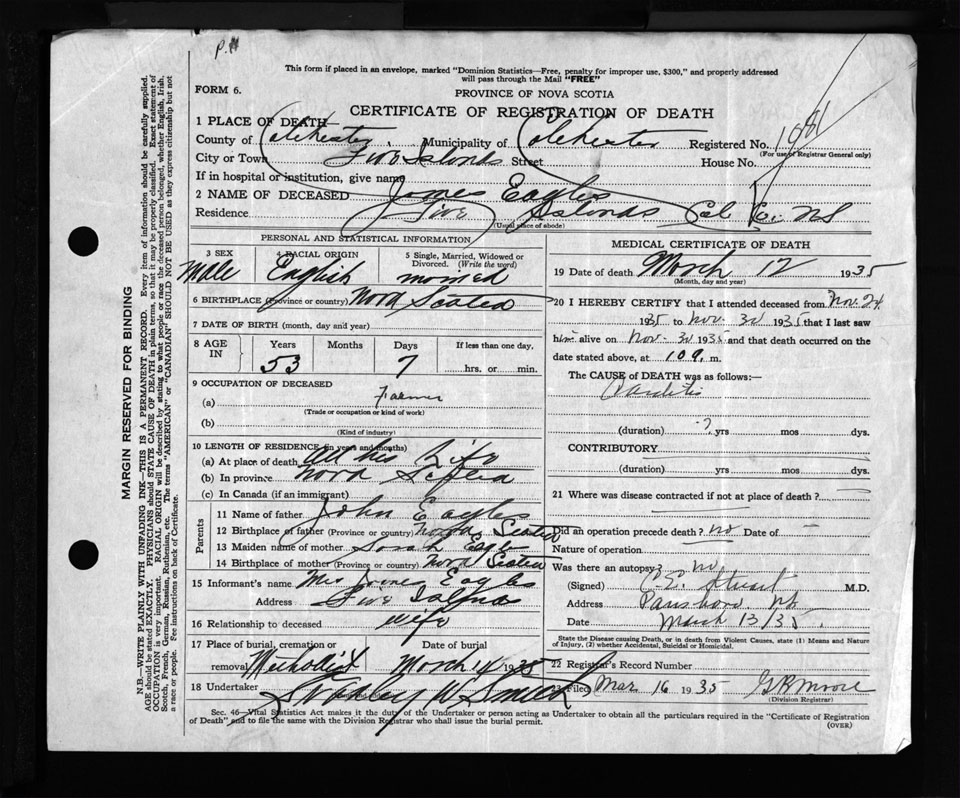 P.
This form if placed in an envelope, marked "Dominion Statistics—Free, penalty for improper use, $300," and properly addressed
will pass through the Mail "FREE"
FORM 6.
PROVINCE OF NOVA SCOTIA
CERTIFICATE OF REGISTRATION OF DEATH
1 PLACE OF DEATH
County of Colchester Municipality of Colchester Registered No.
(For use of Registrar General only)
City or Town Five Islands Street House No.
If in hospital or institution, give name
2 NAME OF DECEASED James Eagles
Residence Five Islands Col Co. NS
(Usual place of abode)
PERSONAL AND STATISTICAL INFORMATION
3 SEX 4 RACIAL ORIGIN 5 Single, Married, Widowed or Divorced. (Write the word)
Male English married
6 BIRTHPLACE (Province or country) Nova Scotia
7 DATE OF BIRTH (month, day and year)
8 AGE IN Years Months Days If less than one day.
53 7 hrs. or min.
9 OCCUPATION OF DECEASED
(a) Farmer
(Trade or occupation or kind of work)
(b)
(Kind of industry)
10 LENGTH OF RESIDENCE (in years and months)
(a) At place of death his Life
(b) In province Nova Scotia
(c) In Canada (if an immigrant)
Parents
11 Name of father John Eagles
12 Birthplace of father (Province or country) Nova Scotia
13 Maiden name of mother Sarah
14 Birthplace of mother (Province or country) Nova Scotia
15 Informant's name Mrs James Eagles
Address Five Islands
16 Relationship to deceased wife
17 Place of burial, cremation or removal Date of burial
Methodist March 14 1935
18 Undertaker
MEDICAL CERTIFICATE OF DEATH
19 Date of death March 12 1935
(Month, day and year)
20 I HEREBY CERTIFY that I attended deceased from Nov. 24
1935 to Nov. 30 1935 that I last saw
him alive on Nov. 30 1935 and that death occurred on the
date stated above, at 10 a. m.
The CAUSE of DEATH was as follows:—
(duration) ? yrs mos dys.
CONTRIBUTORY
(duration) yrs mos dys.
21 Where was disease contracted if not at place of death?
Did an operation precede death? no Date of
Nature of operation
Was there an autopsy? no
(Signed) C. E. Stuart M.D.
Address Parrsboro. NS
Date March 13/35.
State the Disease causing Death, or in death from Violent Causes, state (1) Means and Nature
of Injury, (2) whether Accidental, Suicidal or Homicidal.
22 Registrar's Record Number
23 Filed Mar 16 1935 G R Moore
(Division Registrar)
Sec. 46—Vital Statistics Act makes it the duty of the Undertaker or person acting as Undertaker to obtain all the particulars required in the "Certificate of Registration
of Death" and to file the same with the Division Registrar who shall issue the burial permit.
(OVER)
MARGIN RESERVED FOR BINDING
N.B.—WRITE PLAINLY WITH UNFADING INK—THIS IS A PERMANENT RECORD. Every item of information should be carefully supplied.
AGE should be stated EXACTLY. PHYSICIANS should STATE CAUSE OF DEATH in plain terms, so that it may be properly classified. Exact statement of
OCCUPATION is very important. RACIAL ORIGIN will be described by stating to what people or race the deceased person belonged, whether English, Irish,
Scotch, French, German, Russian, Ruthenian, etc. The terms "AMERICAN" or "CANADIAN" SHOULD NOT BE USED as they express citizenship but not
a race or people. See instructions on back of Certificate.